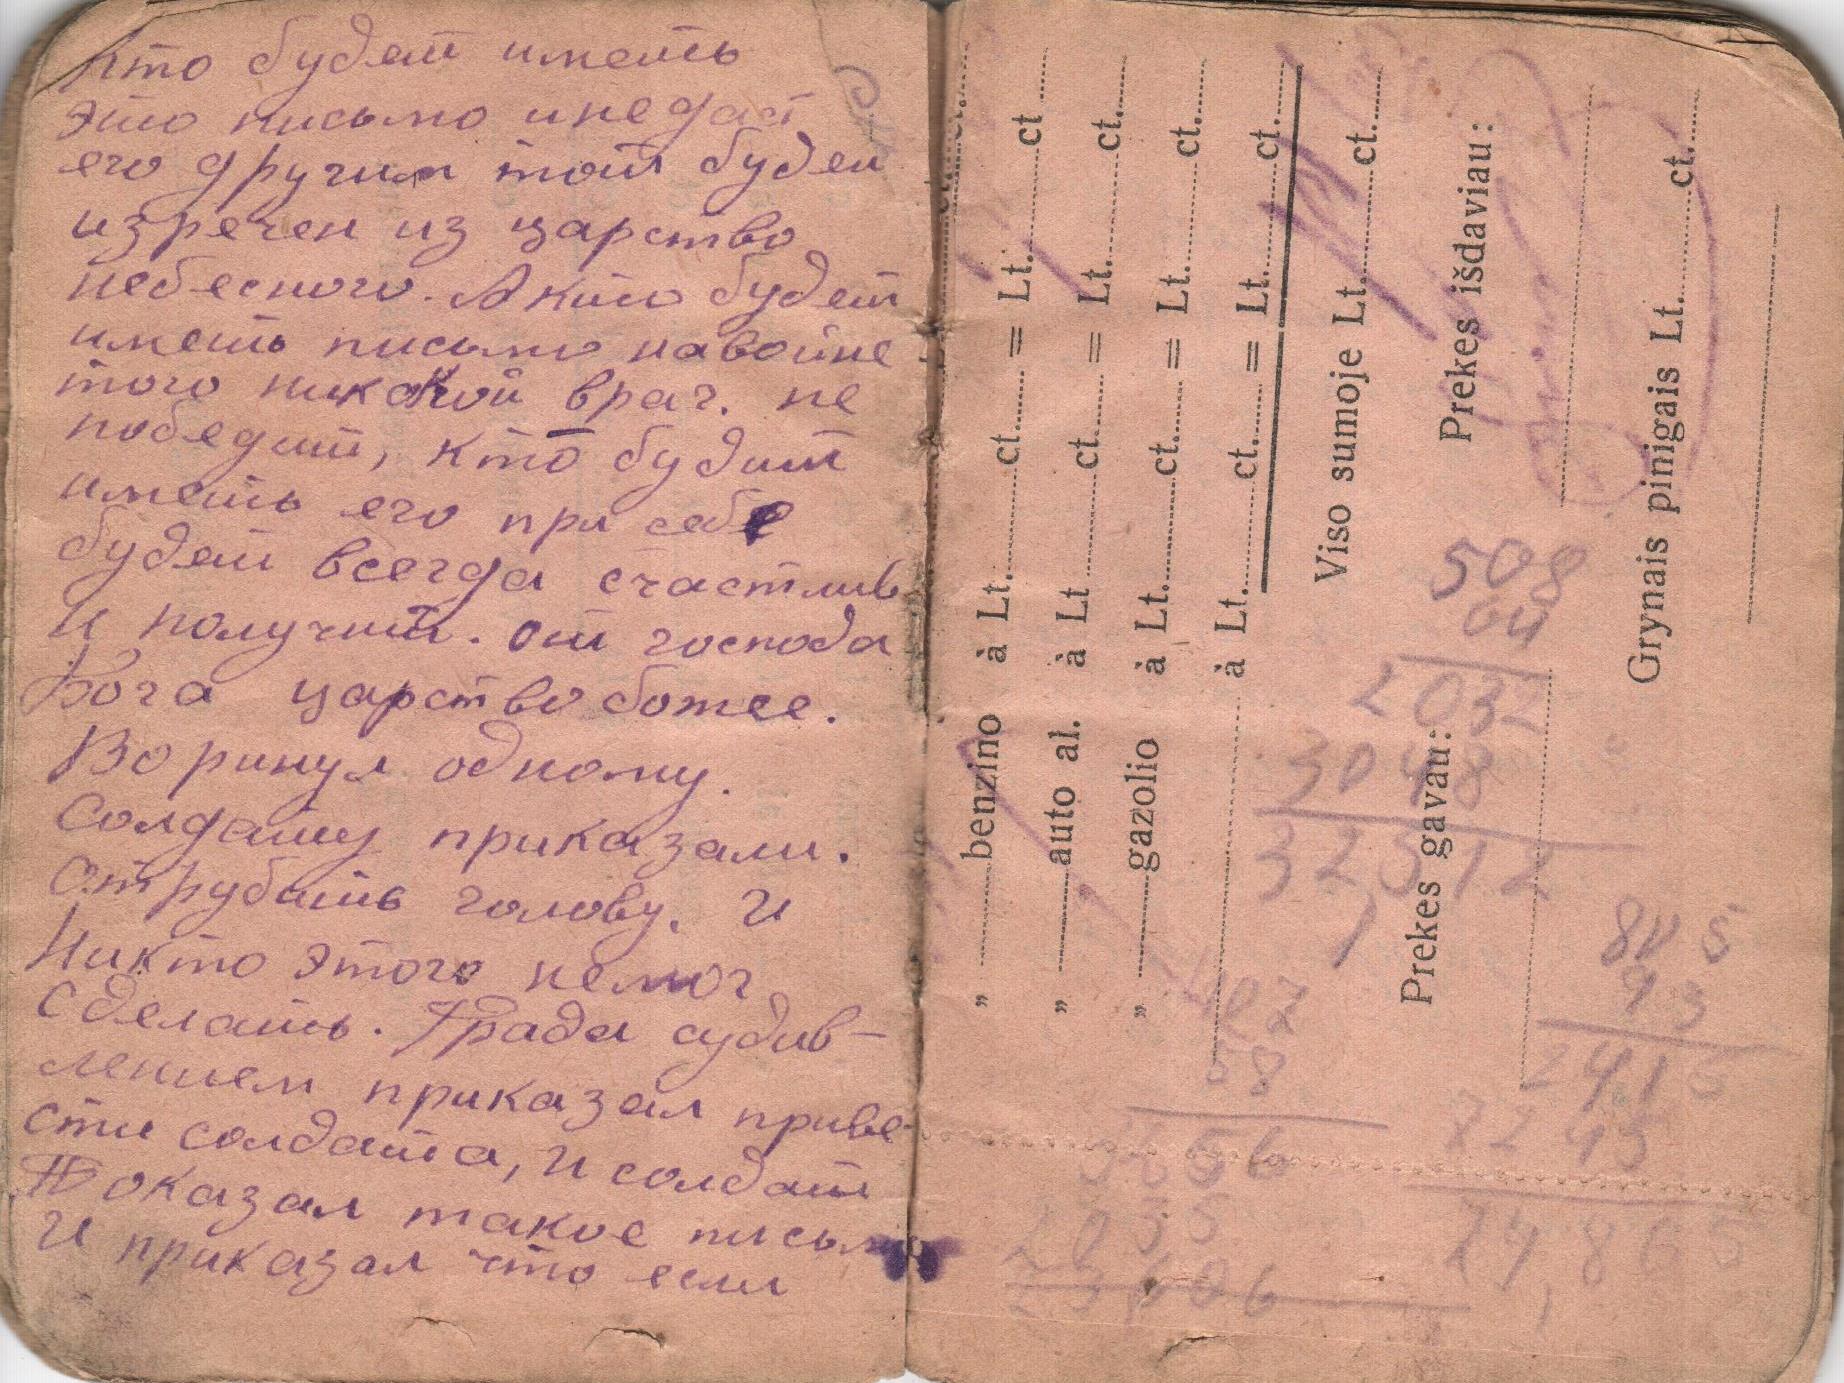 Кто будет иметь
это письмо и не даст
его другим тот будеи
изречен из царство
небесного. А кто будет
иметь письмо навойне
того никакой враг. не
победит, кто будит
иметь его при себе
будет всегда счастлив
и получит. от господа
Бога царство божее.
солдату приказали.
отрубить голову. И
Никто этого немог
сделать. Града судив-
лением приказал приве-
сти солдата, и солдат
Показал такое письм
И приказал что если
„ benzino à Lt. ct. = Lt. ct
„ auto al. à Lt ct = Lt. ct.
„ gazolio à Lt. ct. = Lt. ct.
à Lt. ct. = Lt. ct.
Viso sumoje Lt. ct.
Prekes gavau: Prekes išdaviau:
Grynais pinigais Lt. ct.
508
64
2032
3048
32512
407
58
93
2415
7245